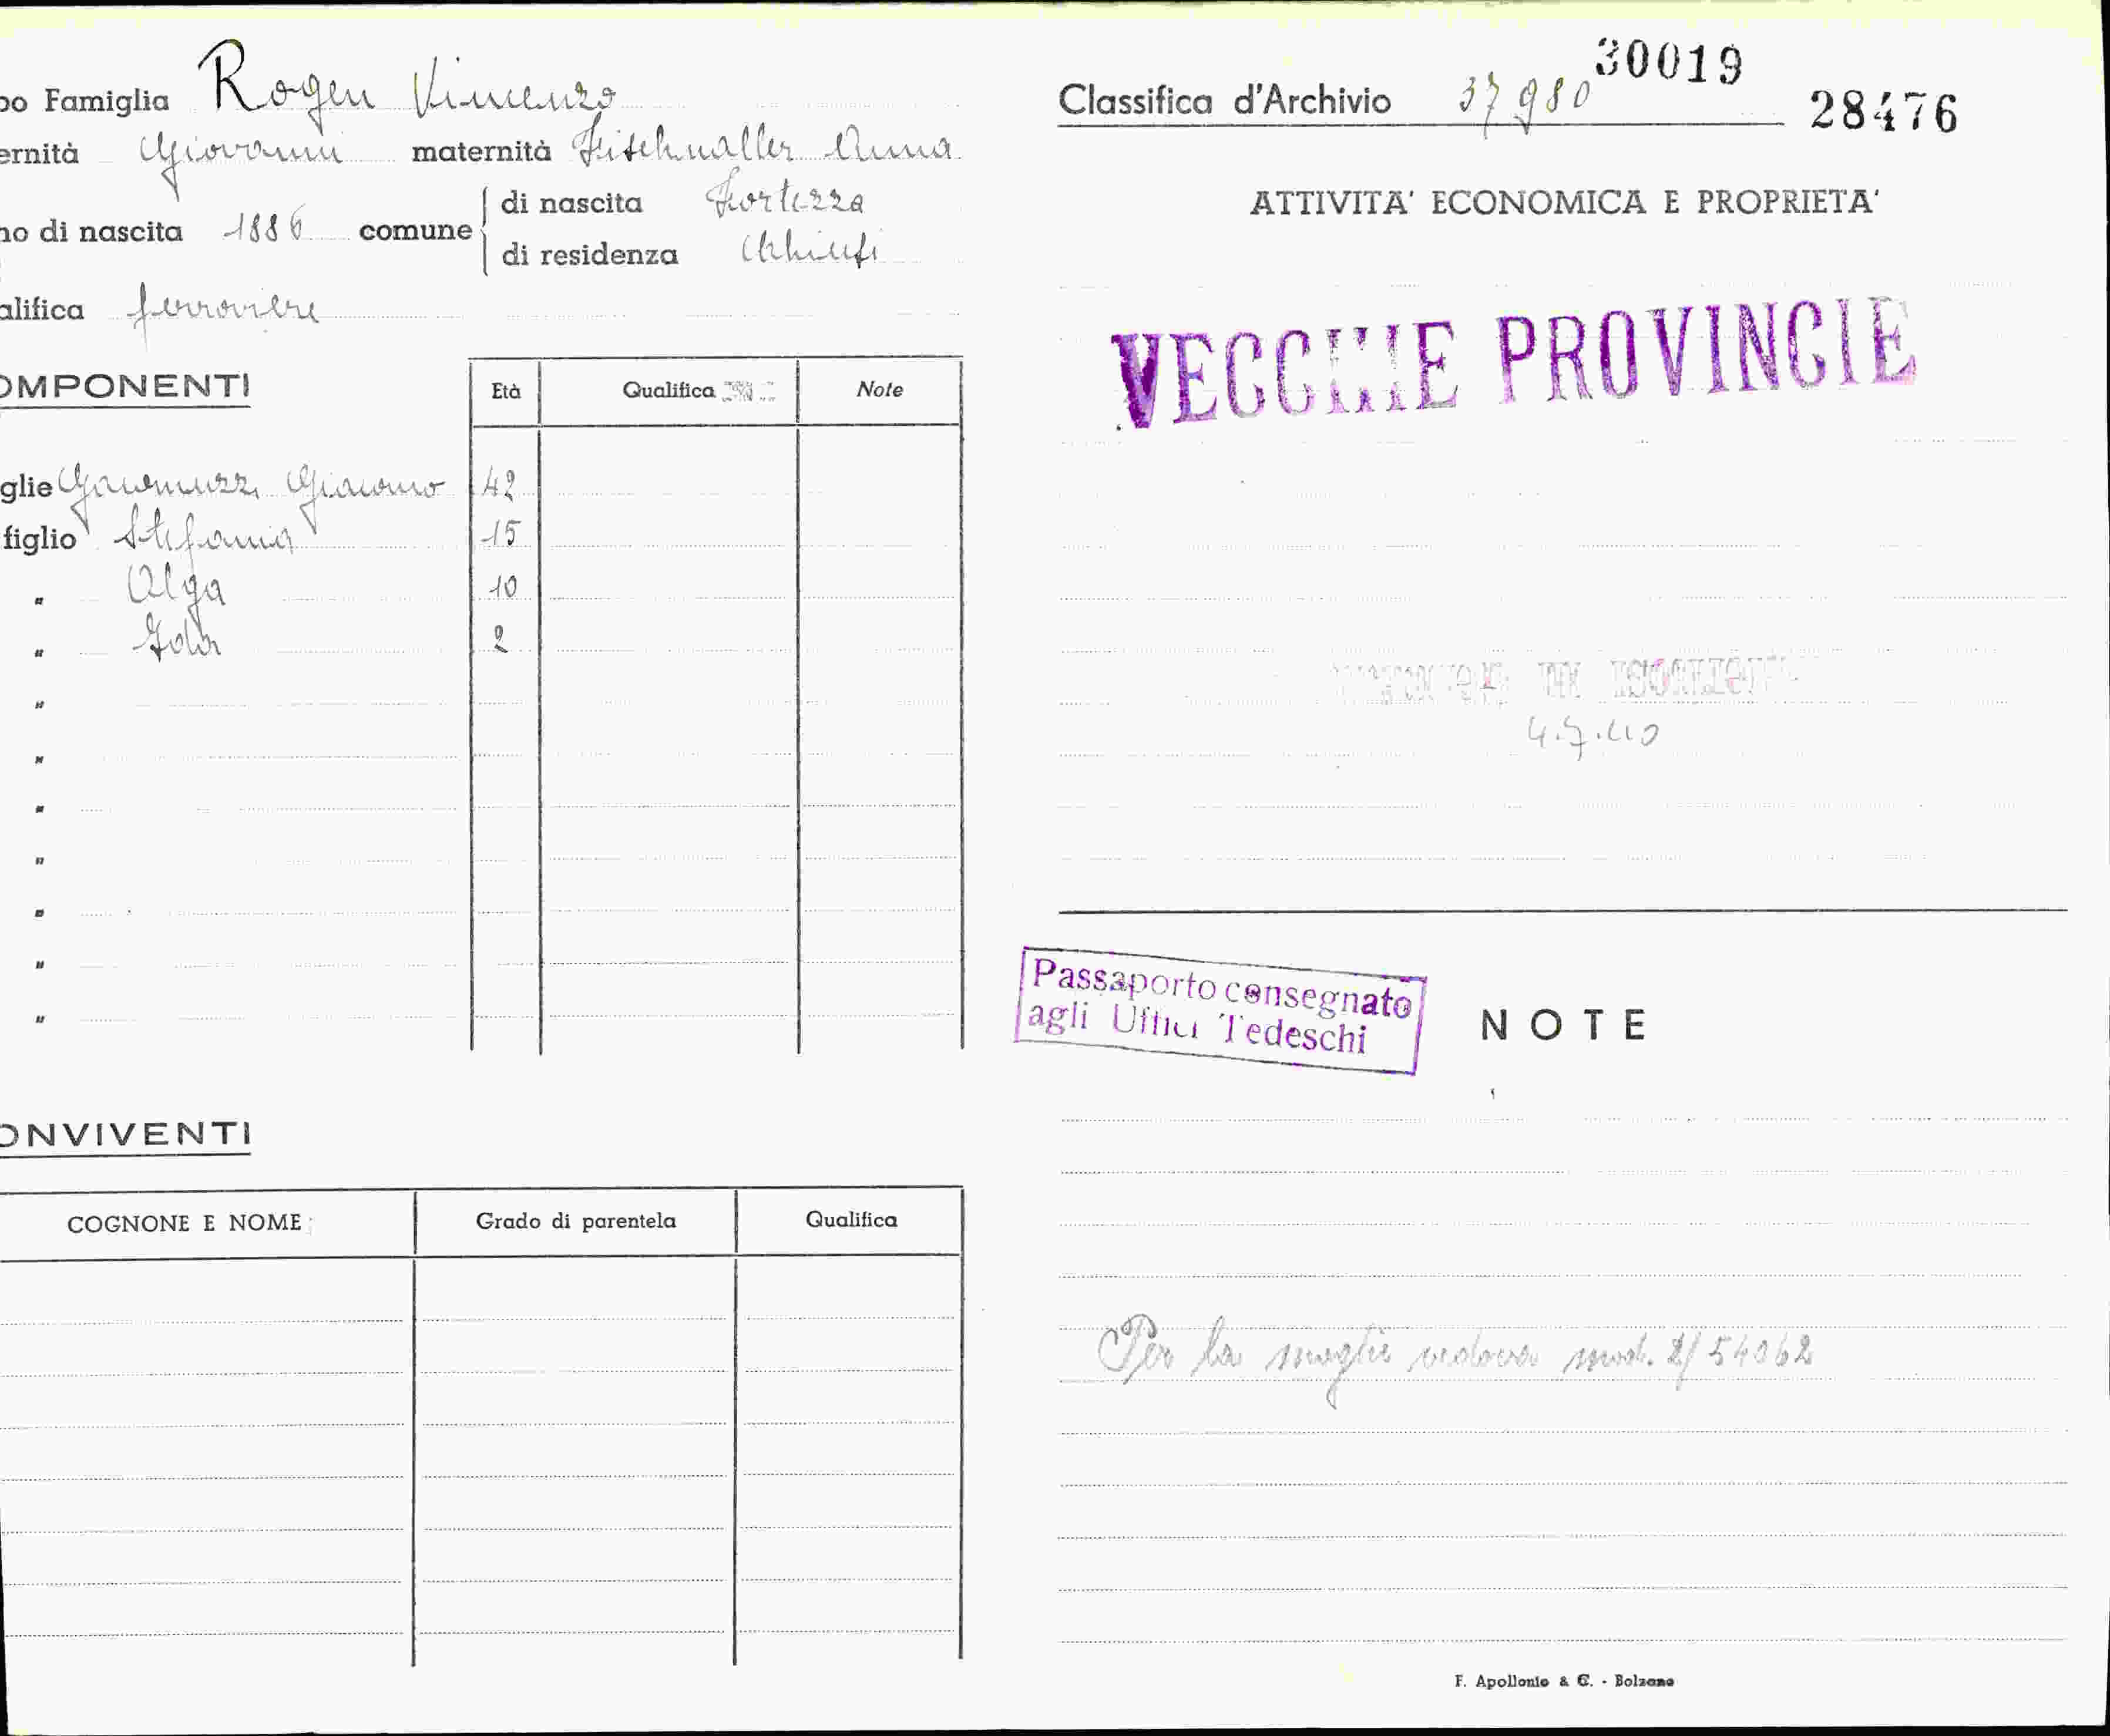 po Famiglia Rogen Vincenzo
ernità Giovanni maternità Fischnaller Anna
no di nascita 1886 comune di nascita Fortezza
di residenza Chiusi
alifica ferroviere
OMPONENTI
Età Qualifica Note
glie Giacomo 42
figlio Stefania 15
" Olga 10
" 2
"
"
"
"
"
"
"
ONVIVENTI
COGNONE E NOME Grado di parentela Qualifica
30019
Classifica d'Archivio 37980
28476
ATTIVITA' ECONOMICA E PROPRIETA'
VECCHIE PROVINCIE
4.7.40
Passaporto consegnato
agli Uffici Tedeschi
NOTE
Per la moglie vedova mod. 2/54062
F. Apollonio & C. - Bolzano